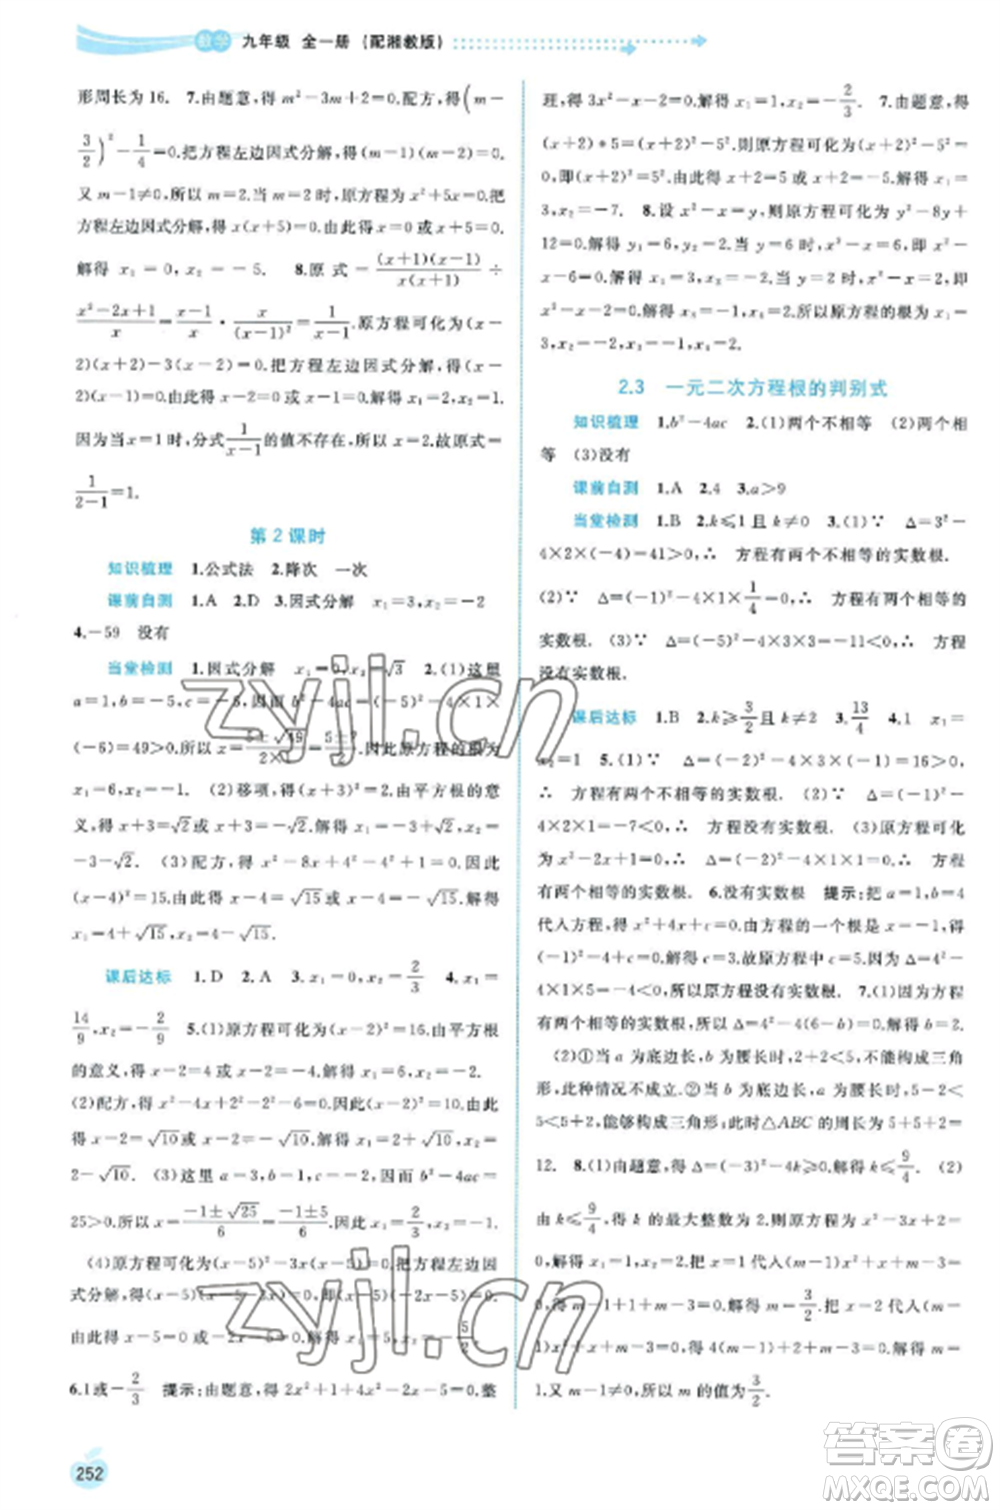 数学 九年级 全一册 (配湘教版)
形周长为16. 7.由题意,得m²-3m+2=0.配方,得(m-
3/2)²-1/4=0.把方程左边因式分解,得(m-1)(m-2)=0.
又m-1≠0,所以m=2.当m=2时,原方程为x²+5x=0.把
方程左边因式分解,得x(x+5)=0.由此得x=0或x+5=0.
解得x₁=0,x₂=-5. 8.原式=(x+1)(x-1)/x(x+1)÷
x²-2x+1/x=x-1/x·x/(x-1)²=1/x-1.原方程可化为(x-
2)(x-1)=0.由此得x-2=0或x-1=0.解得x₁=2,x₂=1.
当x=1时,分式1/x-1的值不存在,所以x=2.故原式=
1/2-1=1.
第2课时
知识梳理 1.公式法 2.降次 一次
课前自测 1.A 2.D 3.因式分解 x₁=3,x₂=-2
4.-59 没有
当堂检测 1.因式分解 x₁=0,x₂=√3 2.(1)这里
a=1,b=-5,c=-6,因而b²-4ac=(-5)²-4×1×
(-6)=49>0.所以x=5±√49/2×1=5±7/2.因此原方程的根为
x₁=6,x₂=-1. (2)移项,得(x+3)²=2.由平方根的意
义,得x+3=√2或x+3=-√2.解得x₁=-3+√2,x₂=
-3-√2. (3)配方,得x²-8x+4²-4²+1=0.因此
(x-4)²=15.由此得x-4=√15或x-4=-√15.解得
x₁=4+√15,x₂=4-√15.
课后达标 1.D 2.A 3.x₁=0,x₂=2/3 4.x₁=
14/9,x₂=-2/9 5.(1)原方程可化为(x-2)²=16.由平方根
的意义,得x-2=4或x-2=-4.解得x₁=6,x₂=-2.
(2)配方,得x²-4x+2²-2²-6=0.因此(x-2)²=10.
由此得x-2=√10或x-2=-√10.解得x₁=2+√10,
x₂=2-√10. (3)这里a=3,b=1,c=-2.因而b²-4ac=
25>0.所以x=-1±√25/6=-1±5/6.因此x₁=2/3,x₂=-1.
(4)原方程可化为(x-5)²-3x(x-5)=0.把方程左边因
式分解,得(x-5)(x-5-3x)=0,即(x-5)(-2x-5)=
0.由此得x-5=0或-2x-5=0.解得x₁=5,x₂=-5/2.
6.1或-2/3 提示:由题意,得2x²+1+4x²-2x-5=0,整
252
班,得3x²-x-2=0.解得x₁=1,x₂=-2/3. 7.由题意,得
(x+2)*5=(x+2)²-5².原方程可化为(x+2)²-5²=
0,即(x+7)(x-3)=0.由此得x+7=0或x-3=0.解得x₁=
3,x₂=-7. 8.设x²-x=y,则原方程可化为y²-8y+
12=0.解得y₁=6,y₂=2.当y=6时,x²-x=6,即x²-
x-6=0.解得x₁=3,x₂=-2.当y=2时,x²-x=2,即
x²-x-2=0.解得x₃=-1,x₄=2.所以原方程的根为x₁=
3,x₂=-2,x₃=-1,x₄=2.
2.3 一元二次方程根的判别式
知识梳理 1.b²-4ac 2.(1)两个不相等 (2)两个相
等 (3)没有
课前自测 1.A 2.4 3.a>9
当堂检测 1.B 2.k≤1且k≠0 3.(1)∵ Δ=3²-
4×2×(-4)=41>0,∴ 方程有两个不相等的实数根.
(2)∵ Δ=(-1)²-4×1×1/4=0,∴ 方程有两个相等的
实数根. (3)∵ Δ=(-5)²-4×3×3=-11<0,∴ 方程
没有实数根.
课后达标 1.B 2.k≥3/2且k≠2 3.13/4 4.1 x₁=
x₂=1
∴ 方程有两个不相等的实数根. (2)∵ Δ=(-3)²-
4×2×2=-7<0,∴ 方程没有实数根. (3)原方程可化
两个相等的实数根. 6.没有实数根 提示:把a=1,b=4
7.(1)因为关于x的方程有两个相等的
实数根,所以Δ=4²-4(6-b)=0.解得b=2.
(2)①当a为底边长,b为腰长时,2+2<5,不能构成三角
形,此种情况不成立.②当b为底边长,a为腰长时,5-2<
5<5+2,能够构成三角形;此时△ABC的周长为5+5+2=
12. 8.(1)由题意,得Δ=(-3)²-4k≥0.解得k≤9/4. (2)
由k≤9/4,得k的最大整数为2,则原方程为x²-3x+2=
0.解得x₁=1,x₂=2.把x=1代入(m-1)x²+x+m-3=
0,得m-1+1+m-3=0.解得m=3/2.把x=2代入(m-
1)x²+x+m-3=0,得4(m-1)+2+m-3=0.解得m=
1.又m-1≠0,所以m的值为3/2.
zyjl.cn
zyjl.cn
答案圈
MXQE.COM